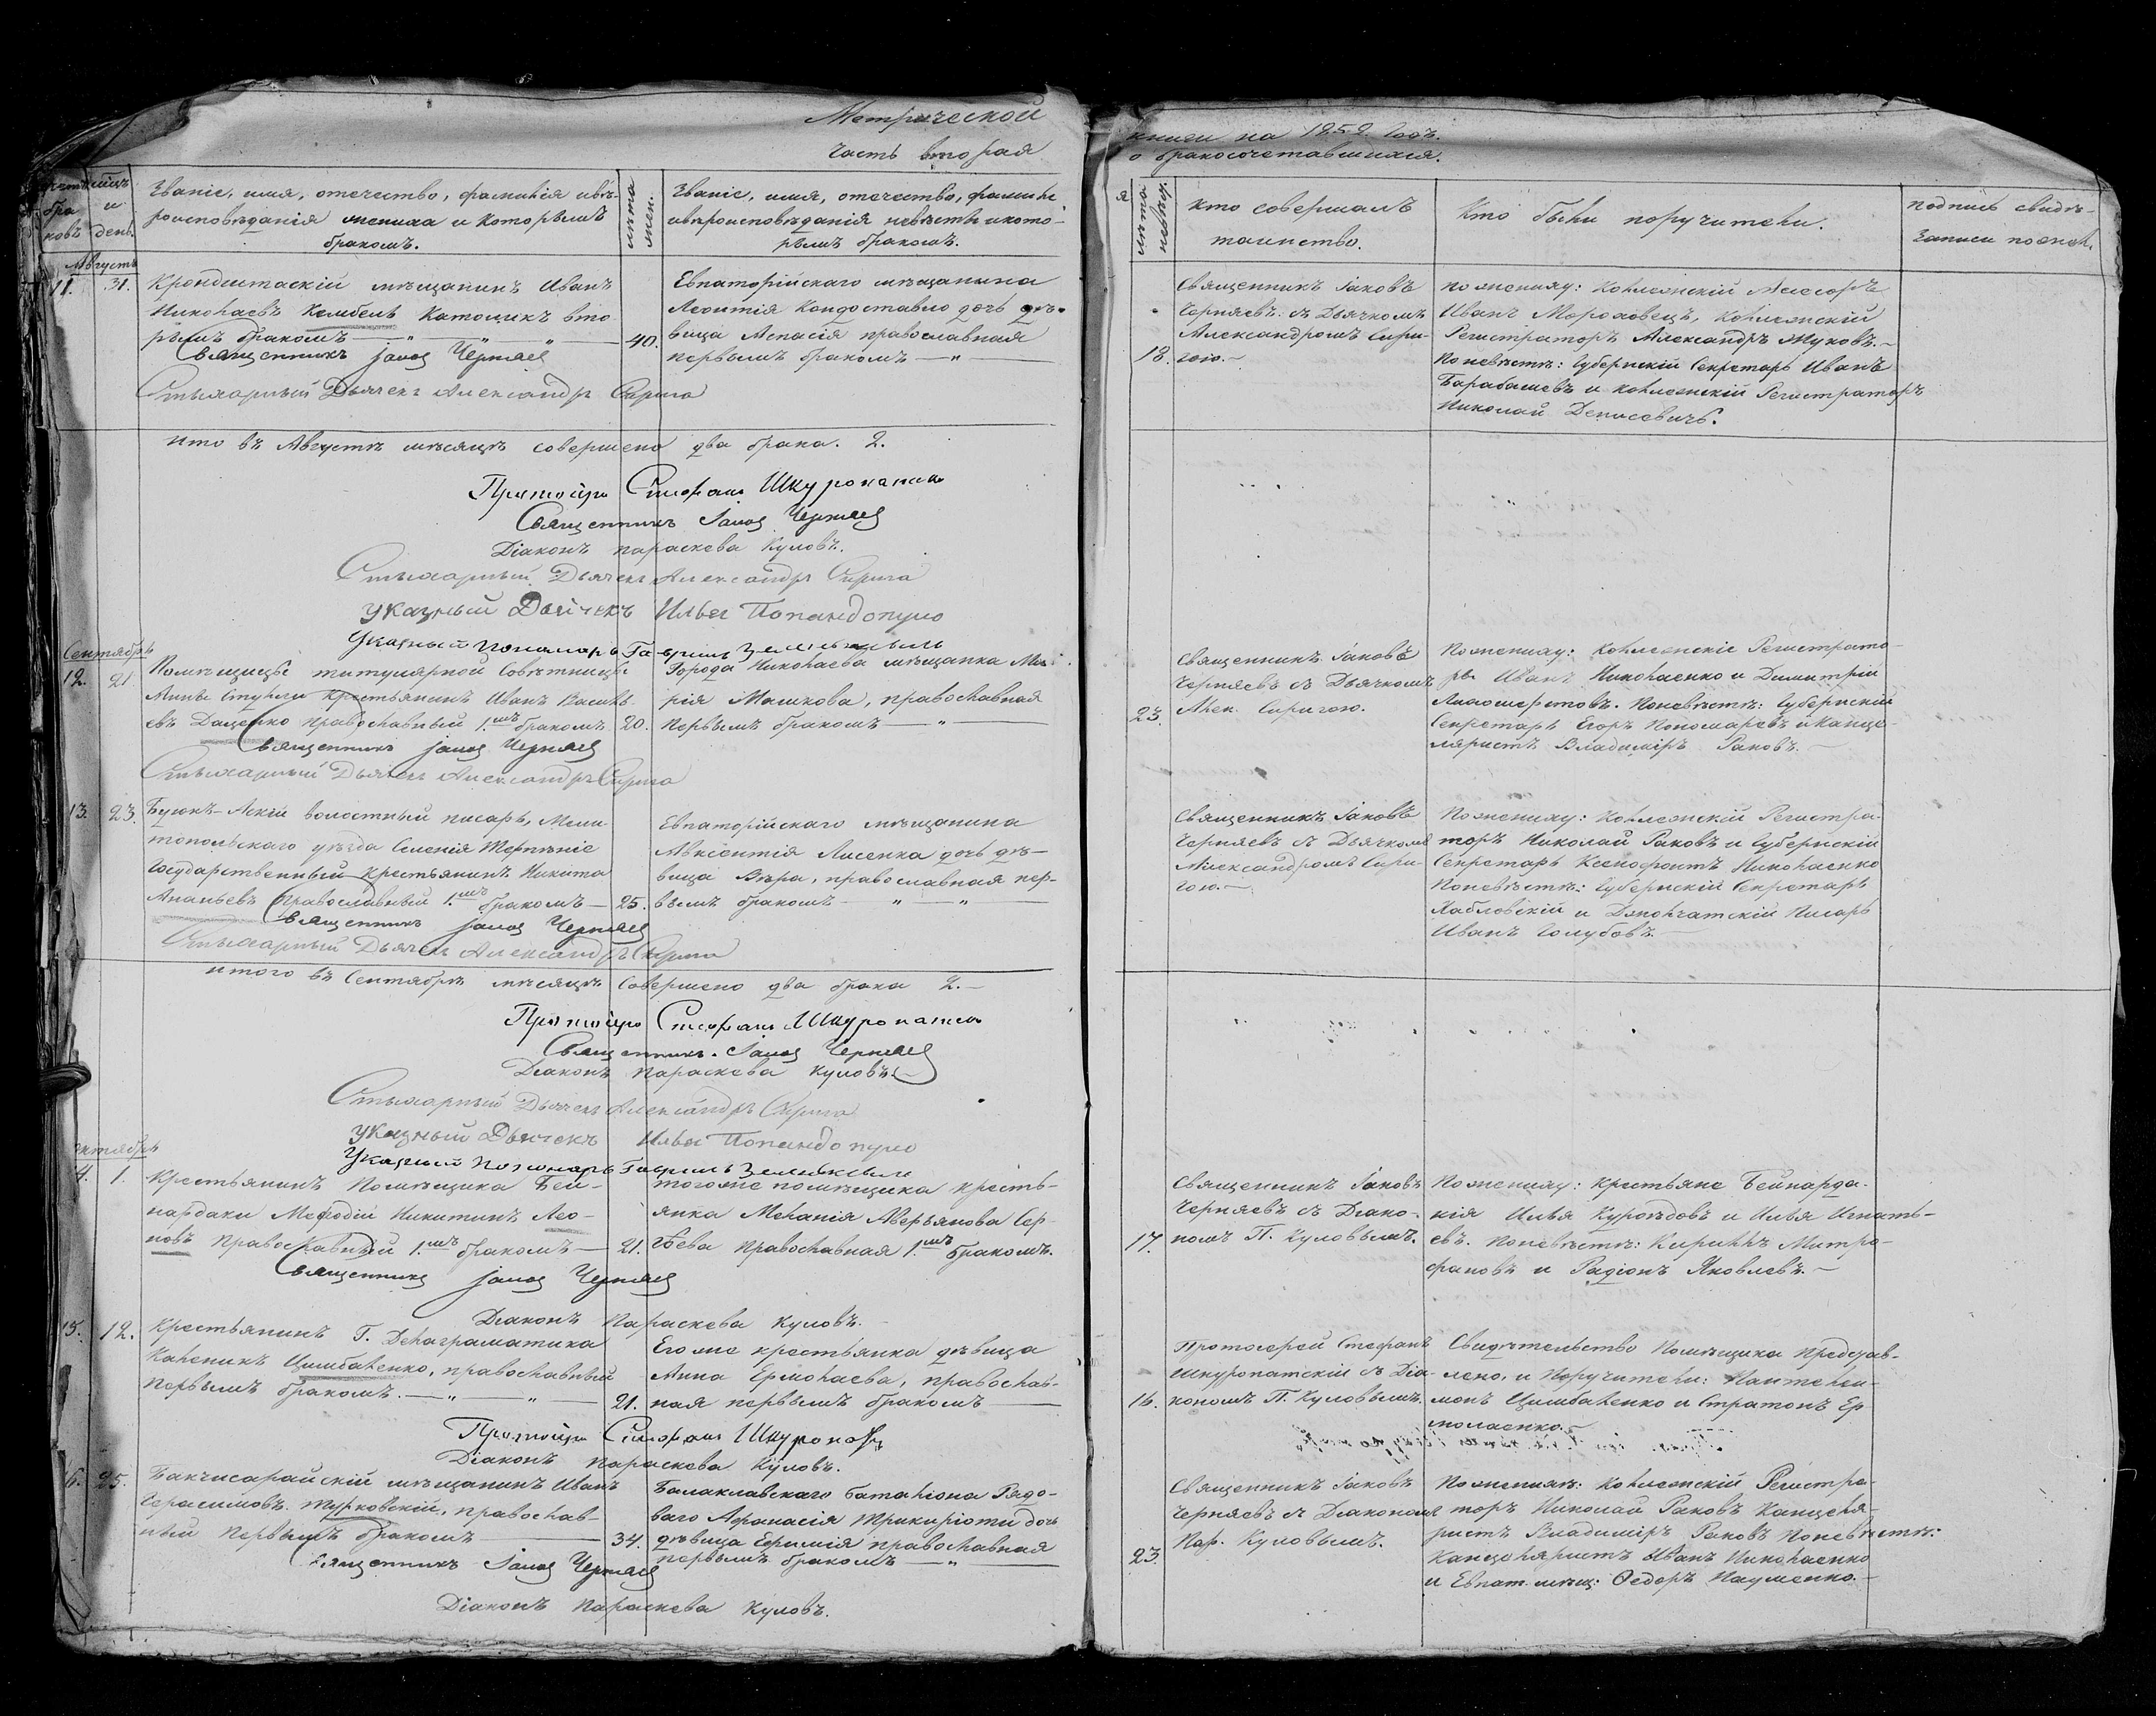 Метрической
часть вторая
книги на 1852 годъ.
о бракосочетавшихся.
бра
ковъ
и
день.
Званіе, имя, отечество, фамилія и вѣ-
роисповѣданія жениха и которымъ
бракомъ.
лѣта
жен.
Званіе, имя, отечество, фамилі
и вѣроисповѣданія невѣсты и кото-
рымъ бракомъ.
я
лѣта
невѣс.
кто совершалъ
таинство.
Кто были поручители.
подпись свидѣ-
записи по жел.
Августъ
11. 31. Кронштаскій мѣщанинъ Иванъ
Николаевъ Кембель Католикъ вто
рымъ бракомъ — „ — „ — 40.
Священникъ Іаков Черняев
Стихарный Дьячекъ Александръ Сирига
Евпаторійскаго мѣщанина
Леонтія Кондоставло дочь дѣ-
вица Аспасія православная
первымъ бракомъ — „ —
18.
Священникъ Іаковъ
Черняевъ съ Дьячкомъ
Александромъ Сири-
гою.—
по жениху: Коллежскій Асессоръ
Иванъ Мороховецъ, Коллежскій
Регистраторъ Александръ Жуковъ.—
По невѣстѣ: Губернскій Секретарь Иванъ
Барабашевъ и Коллежскій Регистраторъ
Николай Денисевичъ.
Итого въ Августѣ мѣсяцѣ совершено два брака. 2.
Протоіерей Стефанъ Шкуропатск
Священникъ Іаков Черняев
Діаконъ Параскева Куловъ.
Стихарный Дьячекъ Александръ Сирига
Указный Дьячекъ Илья Попандопуло
Указный пономарь Гавріилъ Зелинкевичъ
Сентябрь
12. 21. Помѣщицы титулярной Совѣтницы
Анны Спунги крестьянинъ Иванъ Василь-
евъ Даценко православный 1.мъ бракомъ 20.
Священникъ Іаков Черняев
Стихарный Дьячекъ Александръ Сирига
Города Николаева мѣщанка Ма-
рія Машкова, православная
первымъ бракомъ — „ —
23.
Священникъ Іаковъ
Черняевъ съ Дьячкомъ
Алек. Сиригою.
По жениху: Коллежскіе Регистрато-
ры Иванъ Николаенко и Димитрій
Лихошерстовъ. По невѣстѣ: Губернскій
Секретарь Егоръ Пономаревъ и Канце-
ляристъ Владиміръ Раковъ.—
13. 23. Буюкъ-Аскій волостный писарь, Мели
топольскаго уѣзда Селенія Терпѣніе
Государственный крестьянинъ Никита
Ананьевъ православный 1.мъ бракомъ — 25.
Священникъ Іаков Черняев
Стихарный Дьячекъ Александръ Сирига
Евпаторійскаго мѣщанина
Авксентія Лисенка дочь дѣ-
вица Вѣра, православная пер-
вымъ бракомъ — „ — „ —
Священникъ Іаковъ
Черняевъ съ Дьячкомъ
Александромъ Сири-
гою.—
По жениху: Коллежскій Регистра-
торъ Николай Раковъ и Губернскій
Секретарь Ксенофонтъ Николаенко
По невѣстѣ: Губернскій Секретарь
Хабловскій и Джолчатскій Писарь
Иванъ Голубовъ.—
Итого въ Сентябрѣ мѣсяцѣ совершено два брака 2.—
Протоіерей Стефанъ Шкуропатск
Священникъ. Іаков Черняев
Діаконъ Параскева Куловъ.
Стихарный Дьячекъ Александръ Сирига
Указный Дьячекъ Илья Попандопуло
Указный Пономарь Гавріилъ Зелинкевичъ
ктябрь
4. 1. Крестьянинъ Помѣщика Бей-
нардаки Мефодій Никитинъ Лео-
новъ православный 1.мъ бракомъ — 21.
Священникъ Іаков Черняев
Діаконъ Параскева Куловъ.
тогоже помѣщика кресть-
янка Меланія Аверьянова Сер-
гѣева православная 1.мъ бракомъ.
17.
Священникъ Іаковъ
Черняевъ съ Діако-
номъ П. Куловымъ.
По жениху: крестьяне Бейнарда-
кія Илья Куроѣдовъ и Илья Игнать-
евъ. По невѣстѣ: Кириллъ Митро-
фановъ и Радіонъ Яковлевъ.—
15. 12. Крестьянинъ Г. Делаграматика
Каленикъ Цимбаленко, православный
первымъ бракомъ. — „ — „ — 21.
Протоіерей Стефанъ Шкуропатск
Діаконъ Параскева Куловъ.
Его же крестьянка дѣвица
Анна Ермолаева, православ-
ная первымъ бракомъ —
16.
Протоіерей Стефанъ
Шкуропатскій съ Діа-
кономъ П. Куловымъ.
Свидѣтельство Помѣщика представ-
лено, и Поручители: Пантелей-
монъ Цимбаленко и Стратонъ Ер
молаенко.—
6. 25. Бакчисарайскій мѣщанинъ Иванъ
Герасимовъ. Турковскій, православ-
ный первымъ бракомъ — 34.
Священникъ Іаков Черняев
Діаконъ Параскева Куловъ.
Балаклавскаго баталіона Рядо-
ваго Афанасія Трикиріоти дочь
дѣвица Ефимія православная
первымъ бракомъ — „ —
23.
Священникъ Іаковъ
Черняевъ съ Діакономъ
Пар. Куловымъ.
По жениху: Коллежскій Регистра-
торъ Николай Раковъ Канцеля-
ристъ Владиміръ Раковъ По невѣстѣ:
Канцеляристъ Иванъ Николаенко
и Евпат. мѣщ: Ѳедоръ Науменко.—